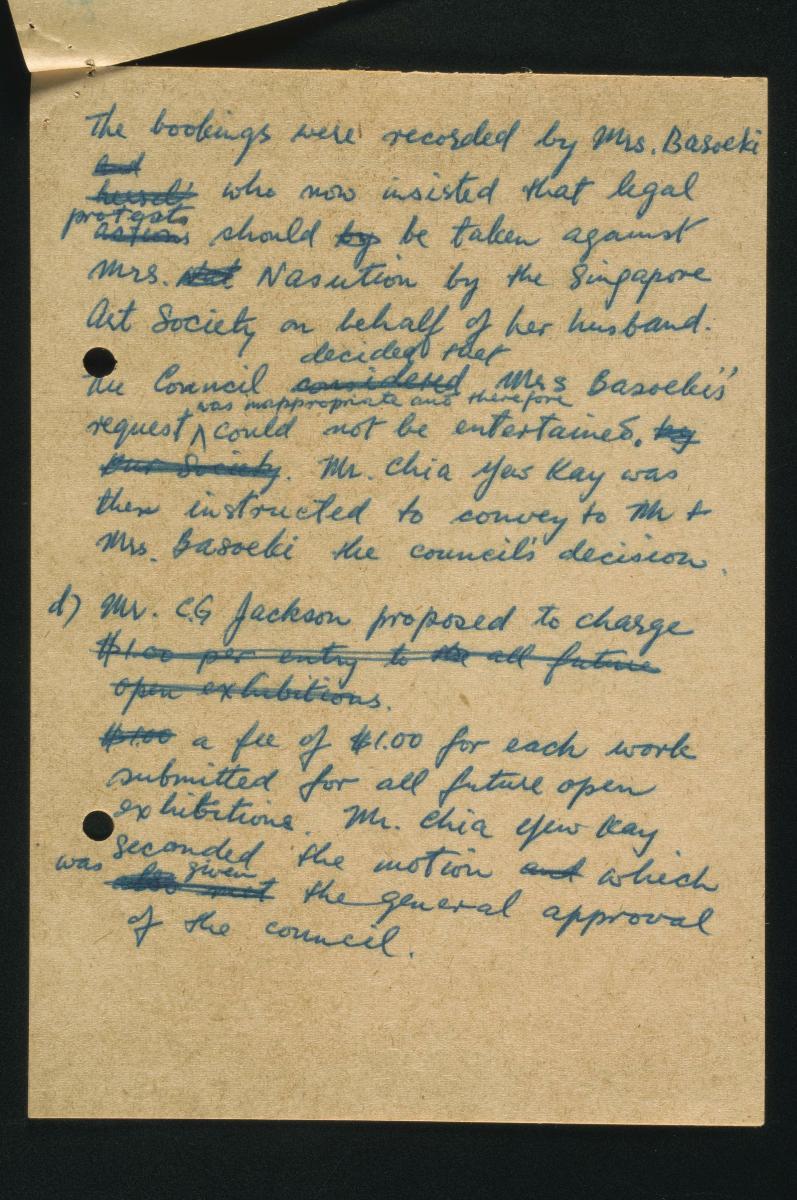 The bookings were recorded by Mrs. Basoeki
and
herself who now insisted that legal
protests
actions should by be taken against
Mrs. Nasution by the Singapore
Art Society on behalf of her husband.
decided that
The Council considered Mrs Basoeki's'
was inappropriate and therefore
request could not be entertained. by
our Society. Mr. Chia Yew Kay was
then instructed to convey to Mr +
Mrs. Basoeki the council's decision.
d) Mr. C.G Jackson proposed to charge
$1.00 per entry to the all future
open exhibitions.
$1.00 a fee of $1.00 for each work
submitted for all future open
exhibitions. Mr. Chia Yew Kay
seconded the motion and which
was given
also met the general approval
of the council.